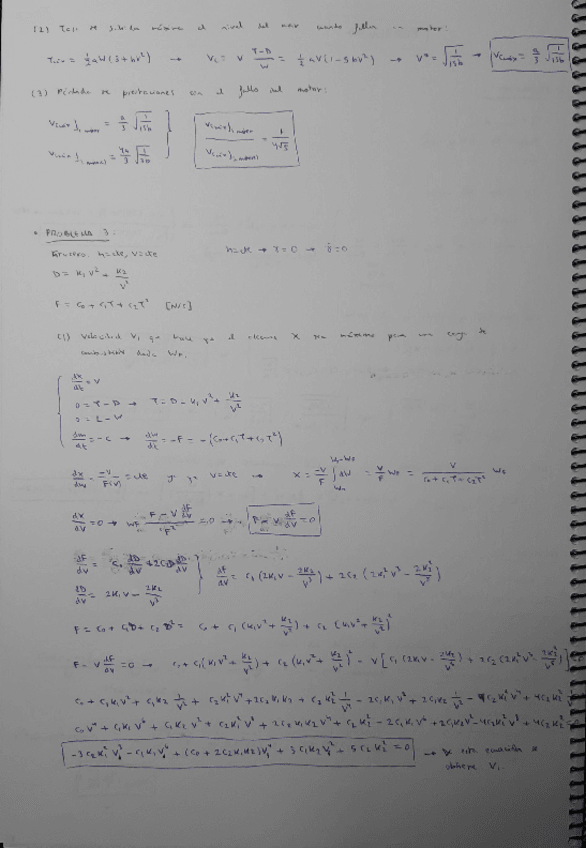 (2) Tasa de subida máxima al nivel del mar cuando falla un motor:
Tmáx = 1/2 aW(3+bV²) → Vc = V (T-D)/W = 1/3 aV(1-5bV²) → V* = √(1/15b) → Vcmáx = a/3 √(1/15b)
(3) Pérdida de prestaciones con el fallo del motor:
Vcmáx]1 motor = a/3 √(1/15b)
Vcmáx]2 motores = 4a/3 √
Vcmáx]1 motor / Vcmáx]2 motores = 1/4√5
• PROBLEMA 3:
Crucero. h=cte, V=cte h=cte → γ=0 → γ̇=0
D = K₁V² + K₂/V²
F = C₀ + C₁T + C₂T² [N/s]
(1) Velocidad V₁ que hace que el alcance X sea máximo para una carga de
combustible dada WF.
dx/dt = V
0 = T-D → T = D = K₁V² + K₂/V²
0 = L-W
dm/dt = -c → dm/dt = -F = -(C₀+C₁T+C₂T²)
= cte ya que V=cte → X = -V/F ∫ dW = V/F WF = V/(C₀+C₁T+C₂T²) WF
dX/dV = 0 → WF (F - V dF/dV)/F² = 0 → F - V dF/dV = 0
dF/dV = C₁ dD/dV + 2C₂D dD/dV
dD/dV = 2K₁V - 2K₂/V³
dF/dV = C₁(2K₁V - 2K₂/V³) + 2C₂(2K₁²V³ - 2K₂²/V⁵)
F = C₀ + C₁D + C₂D² = C₀ + C₁(K₁V² + K₂/V²) + C₂[K₁V² + K₂/V²]²
F - V dF/dV = 0 → C₀ + C₁(K₁V² + K₂/V²) + C₂(K₁V² + K₂/V²)² - V[C₁(2K₁V - 2K₂/V³) + 2C₂(2K₁²V³ - 2K₂²/V⁵)]
C₀ + C₁K₁V² + C₁K₂ 1/V² + C₂K₁²V⁴ + 2C₂K₁K₂ + C₂K₂² 1/V⁴ - 2C₁K₁V² + 2C₁K₂ 1/V² - 4C₂K₁²V⁴ + 4C₂K₂²
C₀V⁴ + C₁K₁V⁶ + C₁K₂V² + C₂K₁²V⁸ + 2C₂K₁K₂V⁴ + C₂K₂² - 2C₁K₁V⁶ + 2C₁K₂V² - 4C₂K₁²V⁸ + 4C₂K₂²
-3C₂K₁²V₁⁸ - C₁K₁V₁⁶ + (C₀ + 2C₂K₁K₂)V₁⁴ + 3C₁K₂V₁² + 5C₂K₂² = 0 → De esta ecuación se
obtiene V₁.